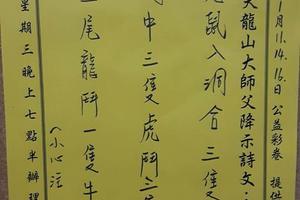 1月11.14.16日公益彩卷 提供
天龍山大師父降示詩文:
尾鼠入洞合三隻
中三隻虎鬥三
三尾龍鬥一隻牛
<小心注
星期三晚上七點半辦理